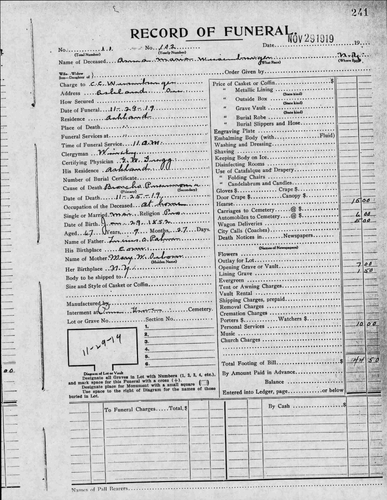 241
RECORD OF FUNERAL.
No. 11 No. 112 Date NOV 29 1919
(Total Number) (Yearly Number)
Name of Deceased Anna
Order Given by
Charge to C. C.
Address Ashland Ore
How Secured
Date of Funeral 11-29-19
Residence Ashland
Place of Death
Time of Funeral Service 11 A.M.
Clergyman
Certifying Physician
His Residence Ashland
Number of Burial Certificate
Cause of Death Broncho Pneumonia
Date of Death 11-25-19
Occupation of the Deceased At home
Single or Married Mar. Religion
Date of Birth
Aged 67 Years 9 Months 27 Days
Name of Father
His Birthplace Conn.
Name of Mother Mary M.
(Maiden Name)
Her Birthplace N.Y.
Body to be shipped to
Size and Style of Casket or Coffin
Manufactured by
Interment at Cemetery
Lot or Grave No. Section No.
1.
2.
3.
4.
5.
6.
11-29-19
Diagram of Lot or Vault
Designate all Graves in Lot with Numbers (1, 2, 3, 4, etc.),
and mark space for this Funeral with a cross (+).
Designate place for Monument with a small square
Use space to the right of Diagram for the names of those
buried in Lot.
Price of Casket or Coffin
" Metallic Lining
" Outside Box
" Grave Vault
" Burial Robe
" Burial Slippers and Hose
Engraving Plate
Embalming Body (with Fluid)
Washing and Dressing
Shaving
Keeping Body on Ice
Disinfecting Rooms
Use of Catafalque and Drapery
" Folding Chairs
" Candelabrum and Candles
Gloves $ Crape $
Door Crape $ Canopy $
Hearse 15.00
Carriages to Cemetery @ $
Automobiles to Cemetery @ $ 6.00
Wagon Deliveries 5.00
City Calls (Coaches)
Death Notices in Newspapers
(Names of Newspapers)
Flowers
Outlay for Lot
Opening Grave or Vault 7.00
Lining Grave 1.50
Evergreen
Tent or Awning Charges
Vault Rental
Shipping Charges, prepaid
Removal Charges
Cremation Charges
Porters $ Watchers $
Personal Services 10.00
Music
Church Charges
Total Footing of Bill 44.50
By Amount Paid in Advance
Balance
Entered into Ledger, page or below
To Funeral Charges Total $ By Cash $
Names of Pall Bearers